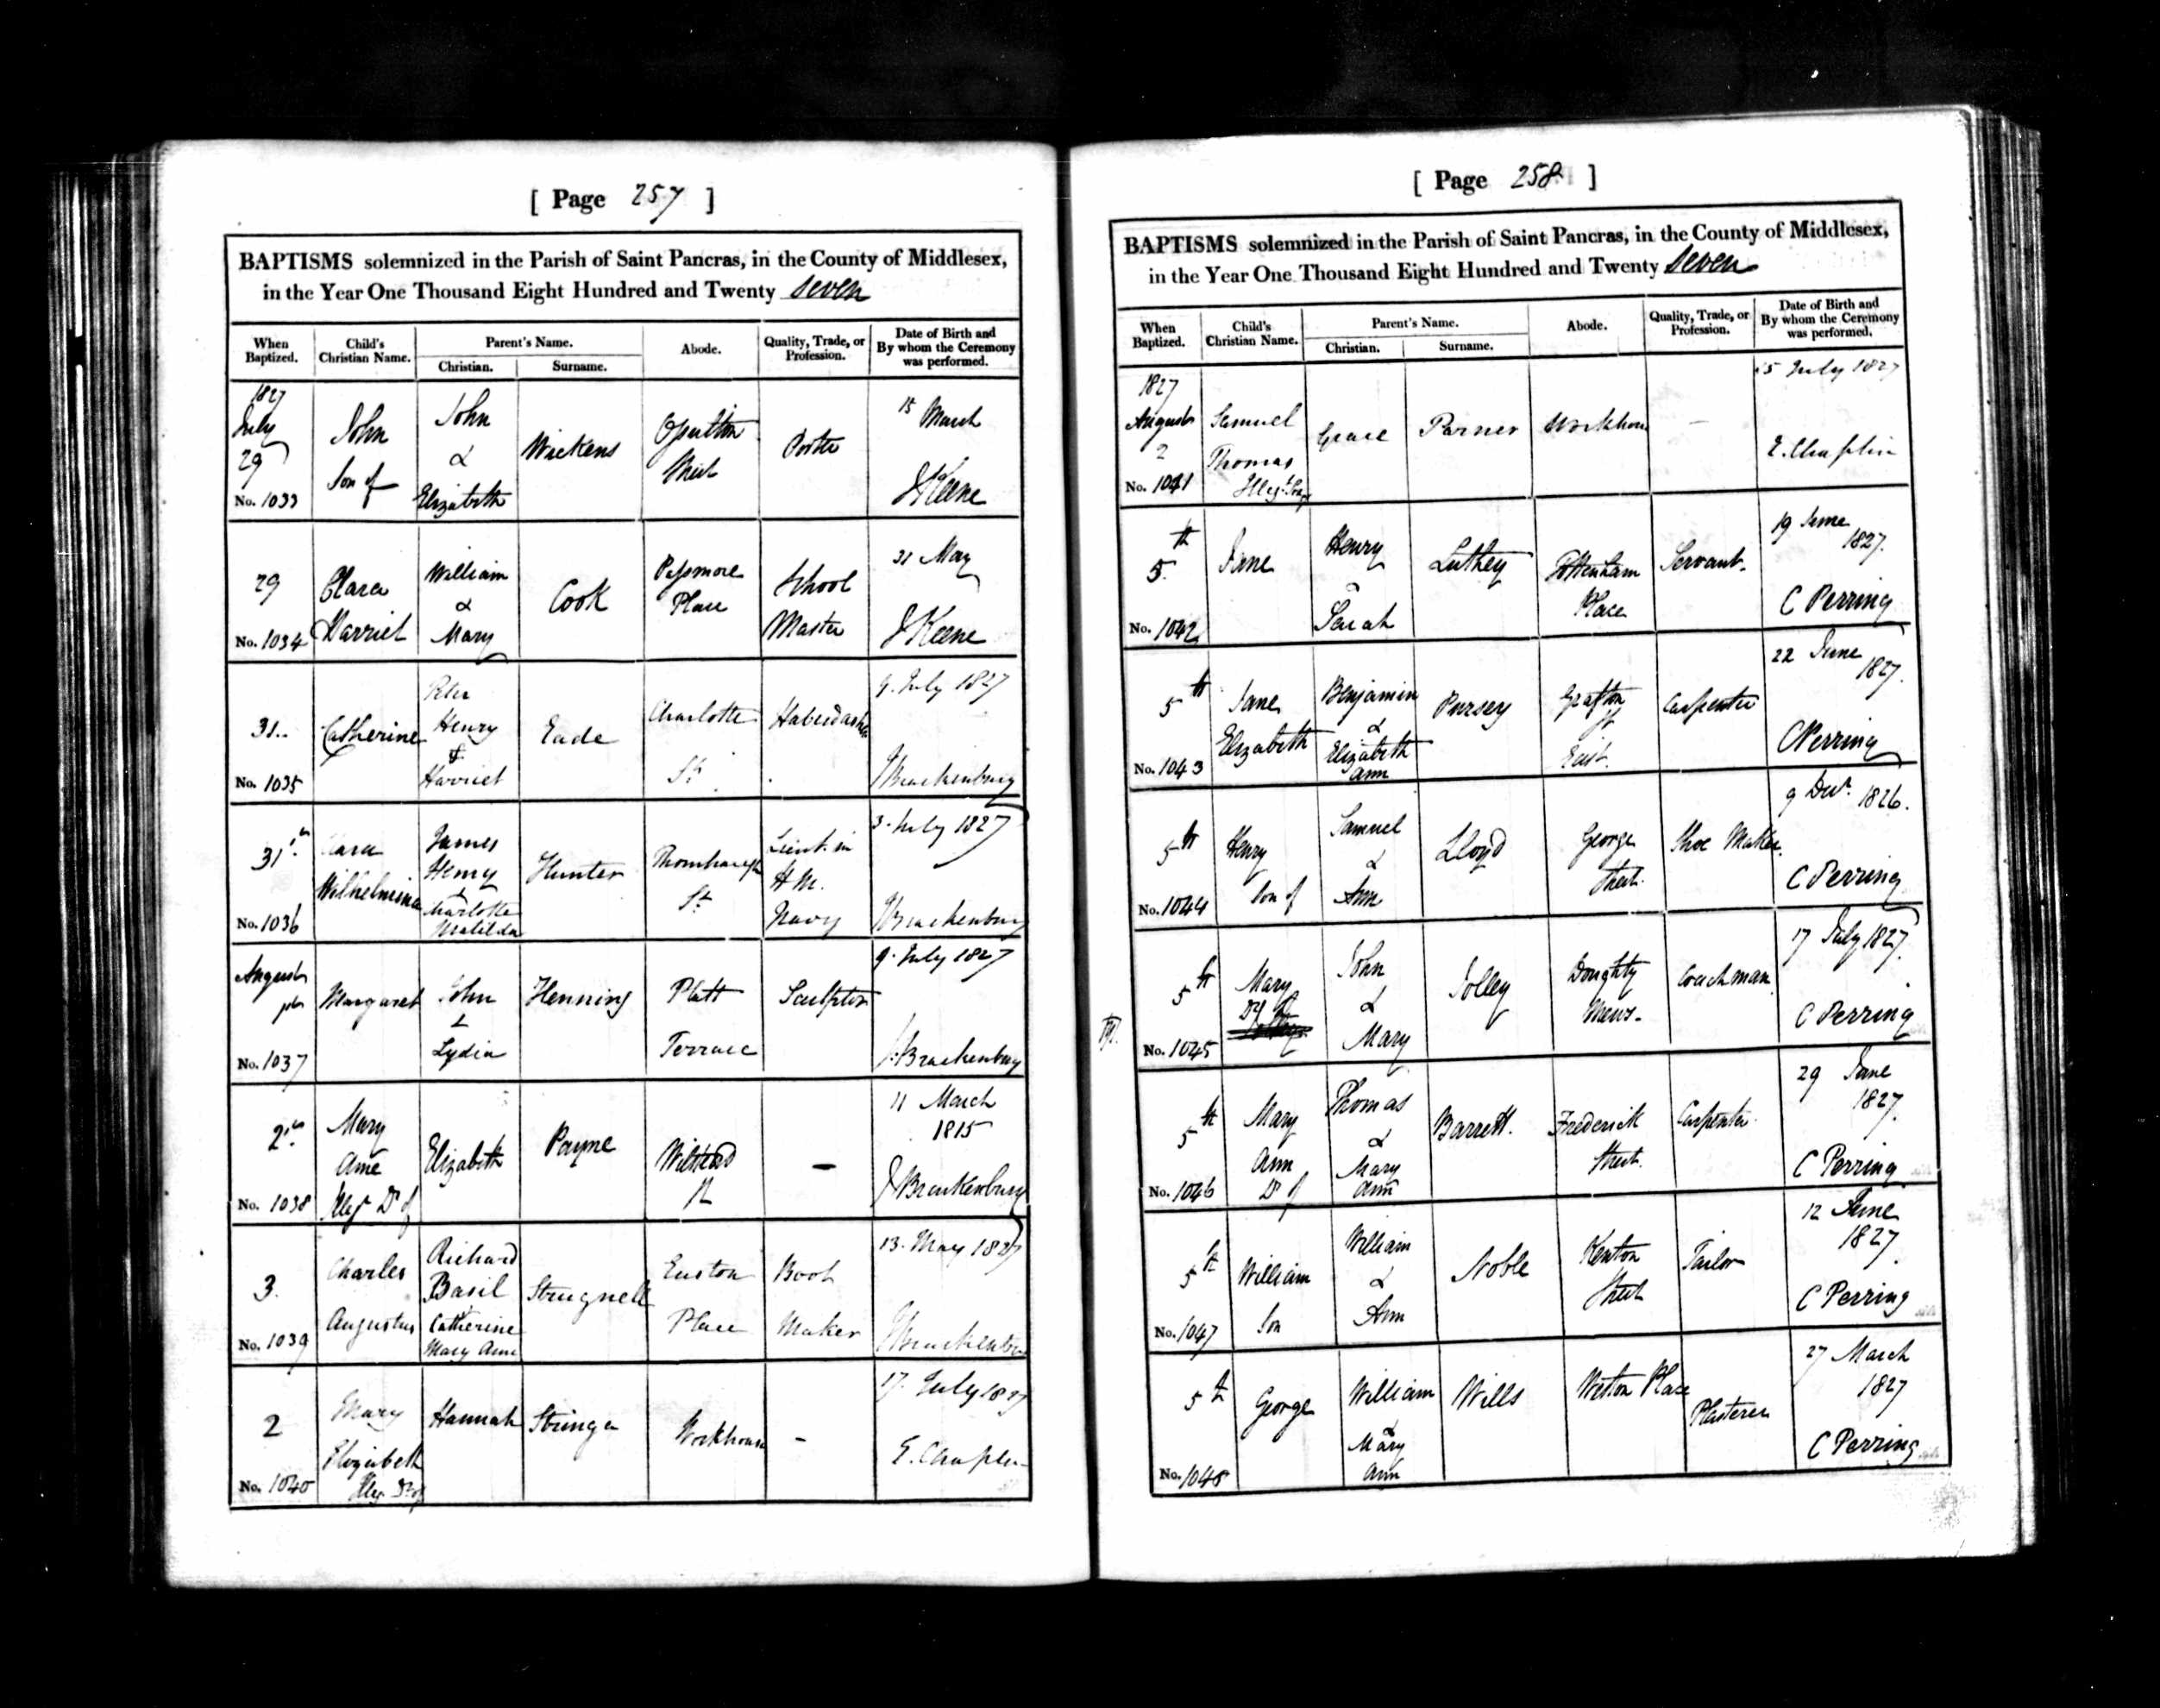 [ Page 257 ]
BAPTISMS solemnized in the Parish of Saint Pancras, in the County of Middlesex,
in the Year One Thousand Eight Hundred and Twenty Seven
When Baptized. Child's Christian Name. Parent's Name. Christian. Surname. Abode. Quality, Trade, or Profession. Date of Birth and By whom the Ceremony was performed.
1827 July 29 No. 1033 John Son of John & Elizabeth Wickens Porter 15 March J Keene
29 No. 1034 Clara Harriet William & Mary Cook Passmore Place School Master 31 May J Keene
31 No. 1035 Catherine Peter Henry & Harriet Eade Charlotte St. Haberdasher 9 July 1827 J Brackenbury
31st No. 1036 Wilhelmina James Henry & Charlotte Matilda Hunter Thornhaugh St. Lieut. in H M. Navy 3 July 1827 J Brackenbury
August No. 1037 Margaret John & Lydia Henning Platt Terrace Sculptor 9 July 1827 J. Brackenbury
2 No. 1038 Mary Ann Illeg. Dr of Elizabeth Payne St — 11 March 1815 J Brackenbury
3. No. 1039 Charles Augustus Richard Basil & Catherine Mary Ann Strugnell Euston Place Boot Maker 13 May 1827 J Brackenbury
2 No. 1040 Mary Elizabeth Illeg. Dr of Hannah Stringer Workhouse - 17 July 1827 E. Chaplin
[ Page 258 ]
BAPTISMS solemnized in the Parish of Saint Pancras, in the County of Middlesex,
in the Year One Thousand Eight Hundred and Twenty Seven
When Baptized. Child's Christian Name. Parent's Name. Christian. Surname. Abode. Quality, Trade, or Profession. Date of Birth and By whom the Ceremony was performed.
1827 August 2 No. 1041 Samuel Thomas Illegt. Son of Grace Parner Workhouse — 15 July 1827 E. Chaplin
5th No. 1042 Jane Henry & Sarah Luthey Tottenham Place Servant. 19 June 1827. C Perring
5th No. 1043 Jane Elizabeth Benjamin & Elizabeth Ann Pursey Grafton St East. Carpenter 22 June 1827. C Perring
5th No. 1044 Henry Son of Samuel & Ann Lloyd George Street. Shoe Maker. 9 Decr. 1826. C Perring
5th No. 1045 Mary Dr of John & Mary Jolley Doughty Mews. Coachman 17 July 1827. C Perring
5th No. 1046 Mary Ann Dr of Thomas & Mary Ann Barrett. Frederick Street. Carpenter. 29 June 1827. C Perring
5th No. 1047 William Son William & Ann Noble Kenton Street Tailor 12 June 1827 C Perring
5th No. 1048 George William & Mary Ann Wills Weston Place Plasterer 27 March 1827 C Perring